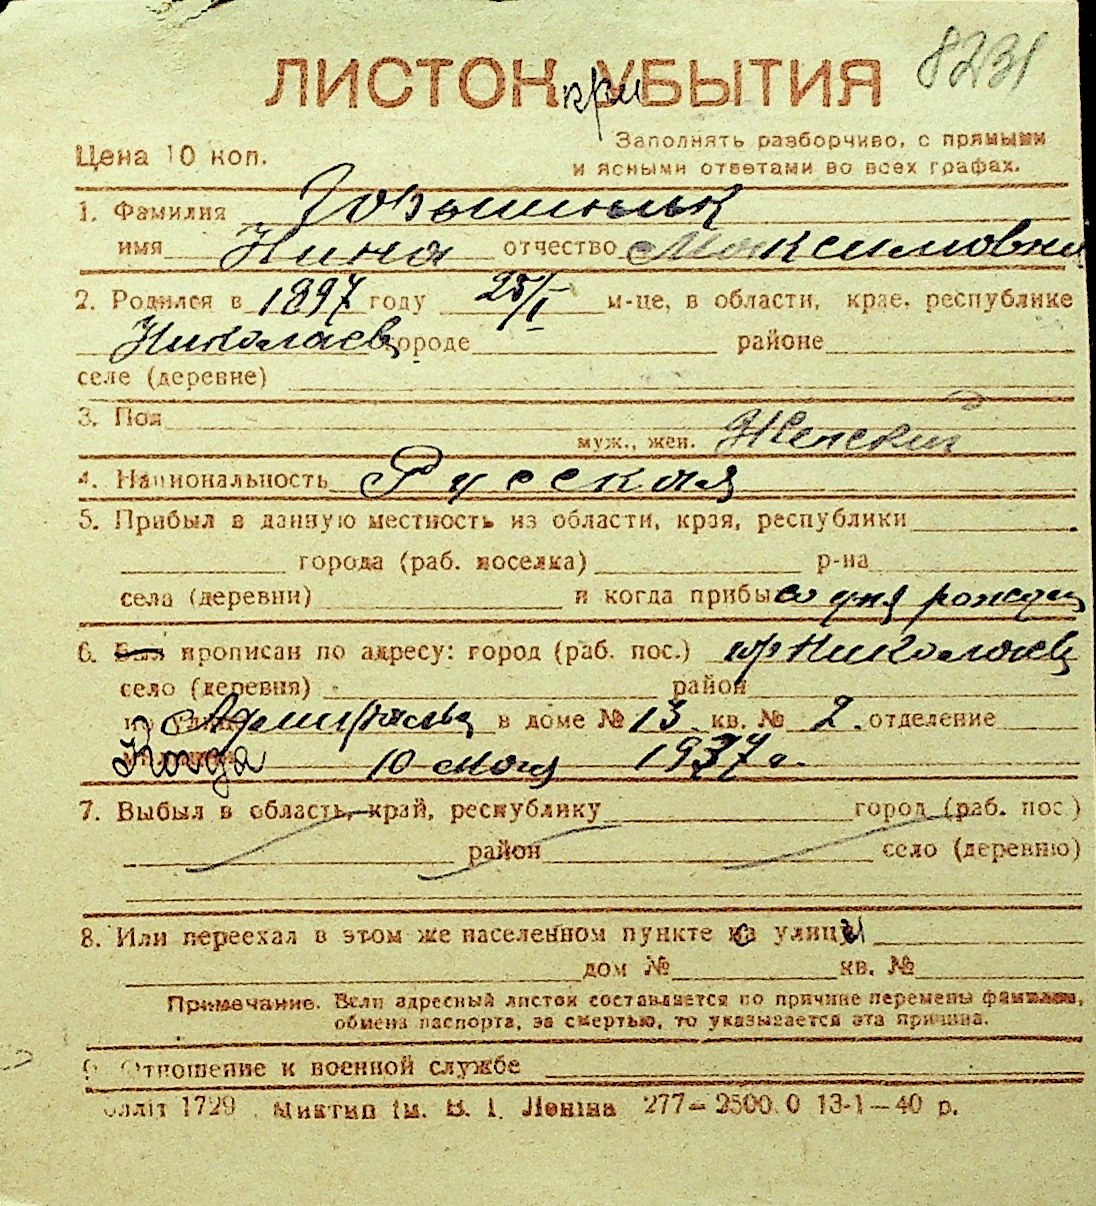 8231
ЛИСТОК при УБЫТИЯ
Цена 10 коп.
Заполнять разборчиво, с прямыми
и ясными ответами во всех графах.
1. Фамилия
имя Нина отчество Максимовна
2. Родился в 1897 году 25/I м-це, в области, крае, республике
Николаев городе районе
селе (деревне)
3. Пол
муж., жен. Женский
4. Национальность Русская
5. Прибыл в данную местность из области, края, республики
города (раб. поселка) р-на
села (деревни) и когда прибы со дня рожден
6. Был прописан по адресу: город (раб. пос.) гор Николаев
село (деревня) район
по улице в доме № 13 кв. № 2. отделение
Когда 10 мая 1937 г.
7. Выбыл в область, край, республику город (раб. пос.)
район село (деревню)
8. Или переехал в этом же населенном пункте с улицы
дом № кв. №
Примечание. Если адресный листок составляется по причине перемены фамилии,
обмена паспорта, за смертью, то указывается эта причина.
9. Отношение к военной службе
Облліт 1729 . Миктип ім. В. І. Леніна 277—2500.0 13-1—40 р.